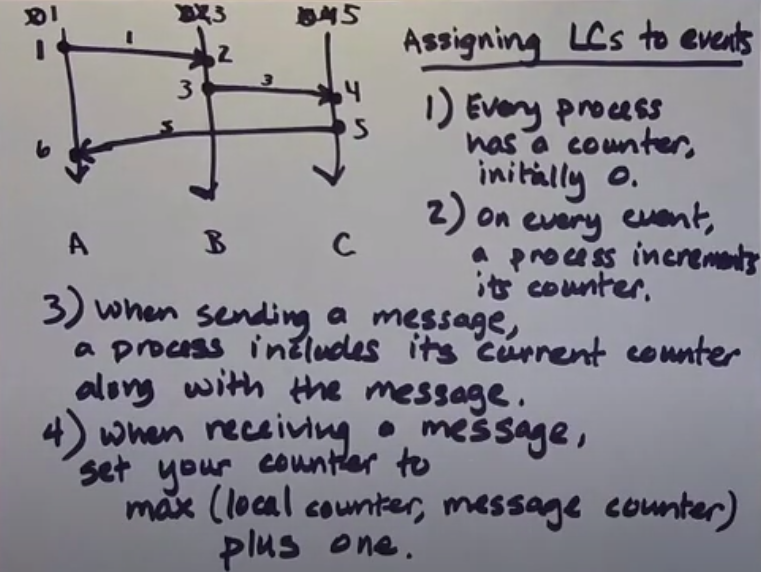 1 3 5
1
1
2
3
3
4
5
5
6
A B C
Assigning LCs to events
1) Every process
has a counter,
initially 0.
2) On every event,
a process increments
its counter.
3) When sending a message,
a process includes its current counter
along with the message.
4) When receiving a message,
set your counter to
max (local counter, message counter)
plus one.